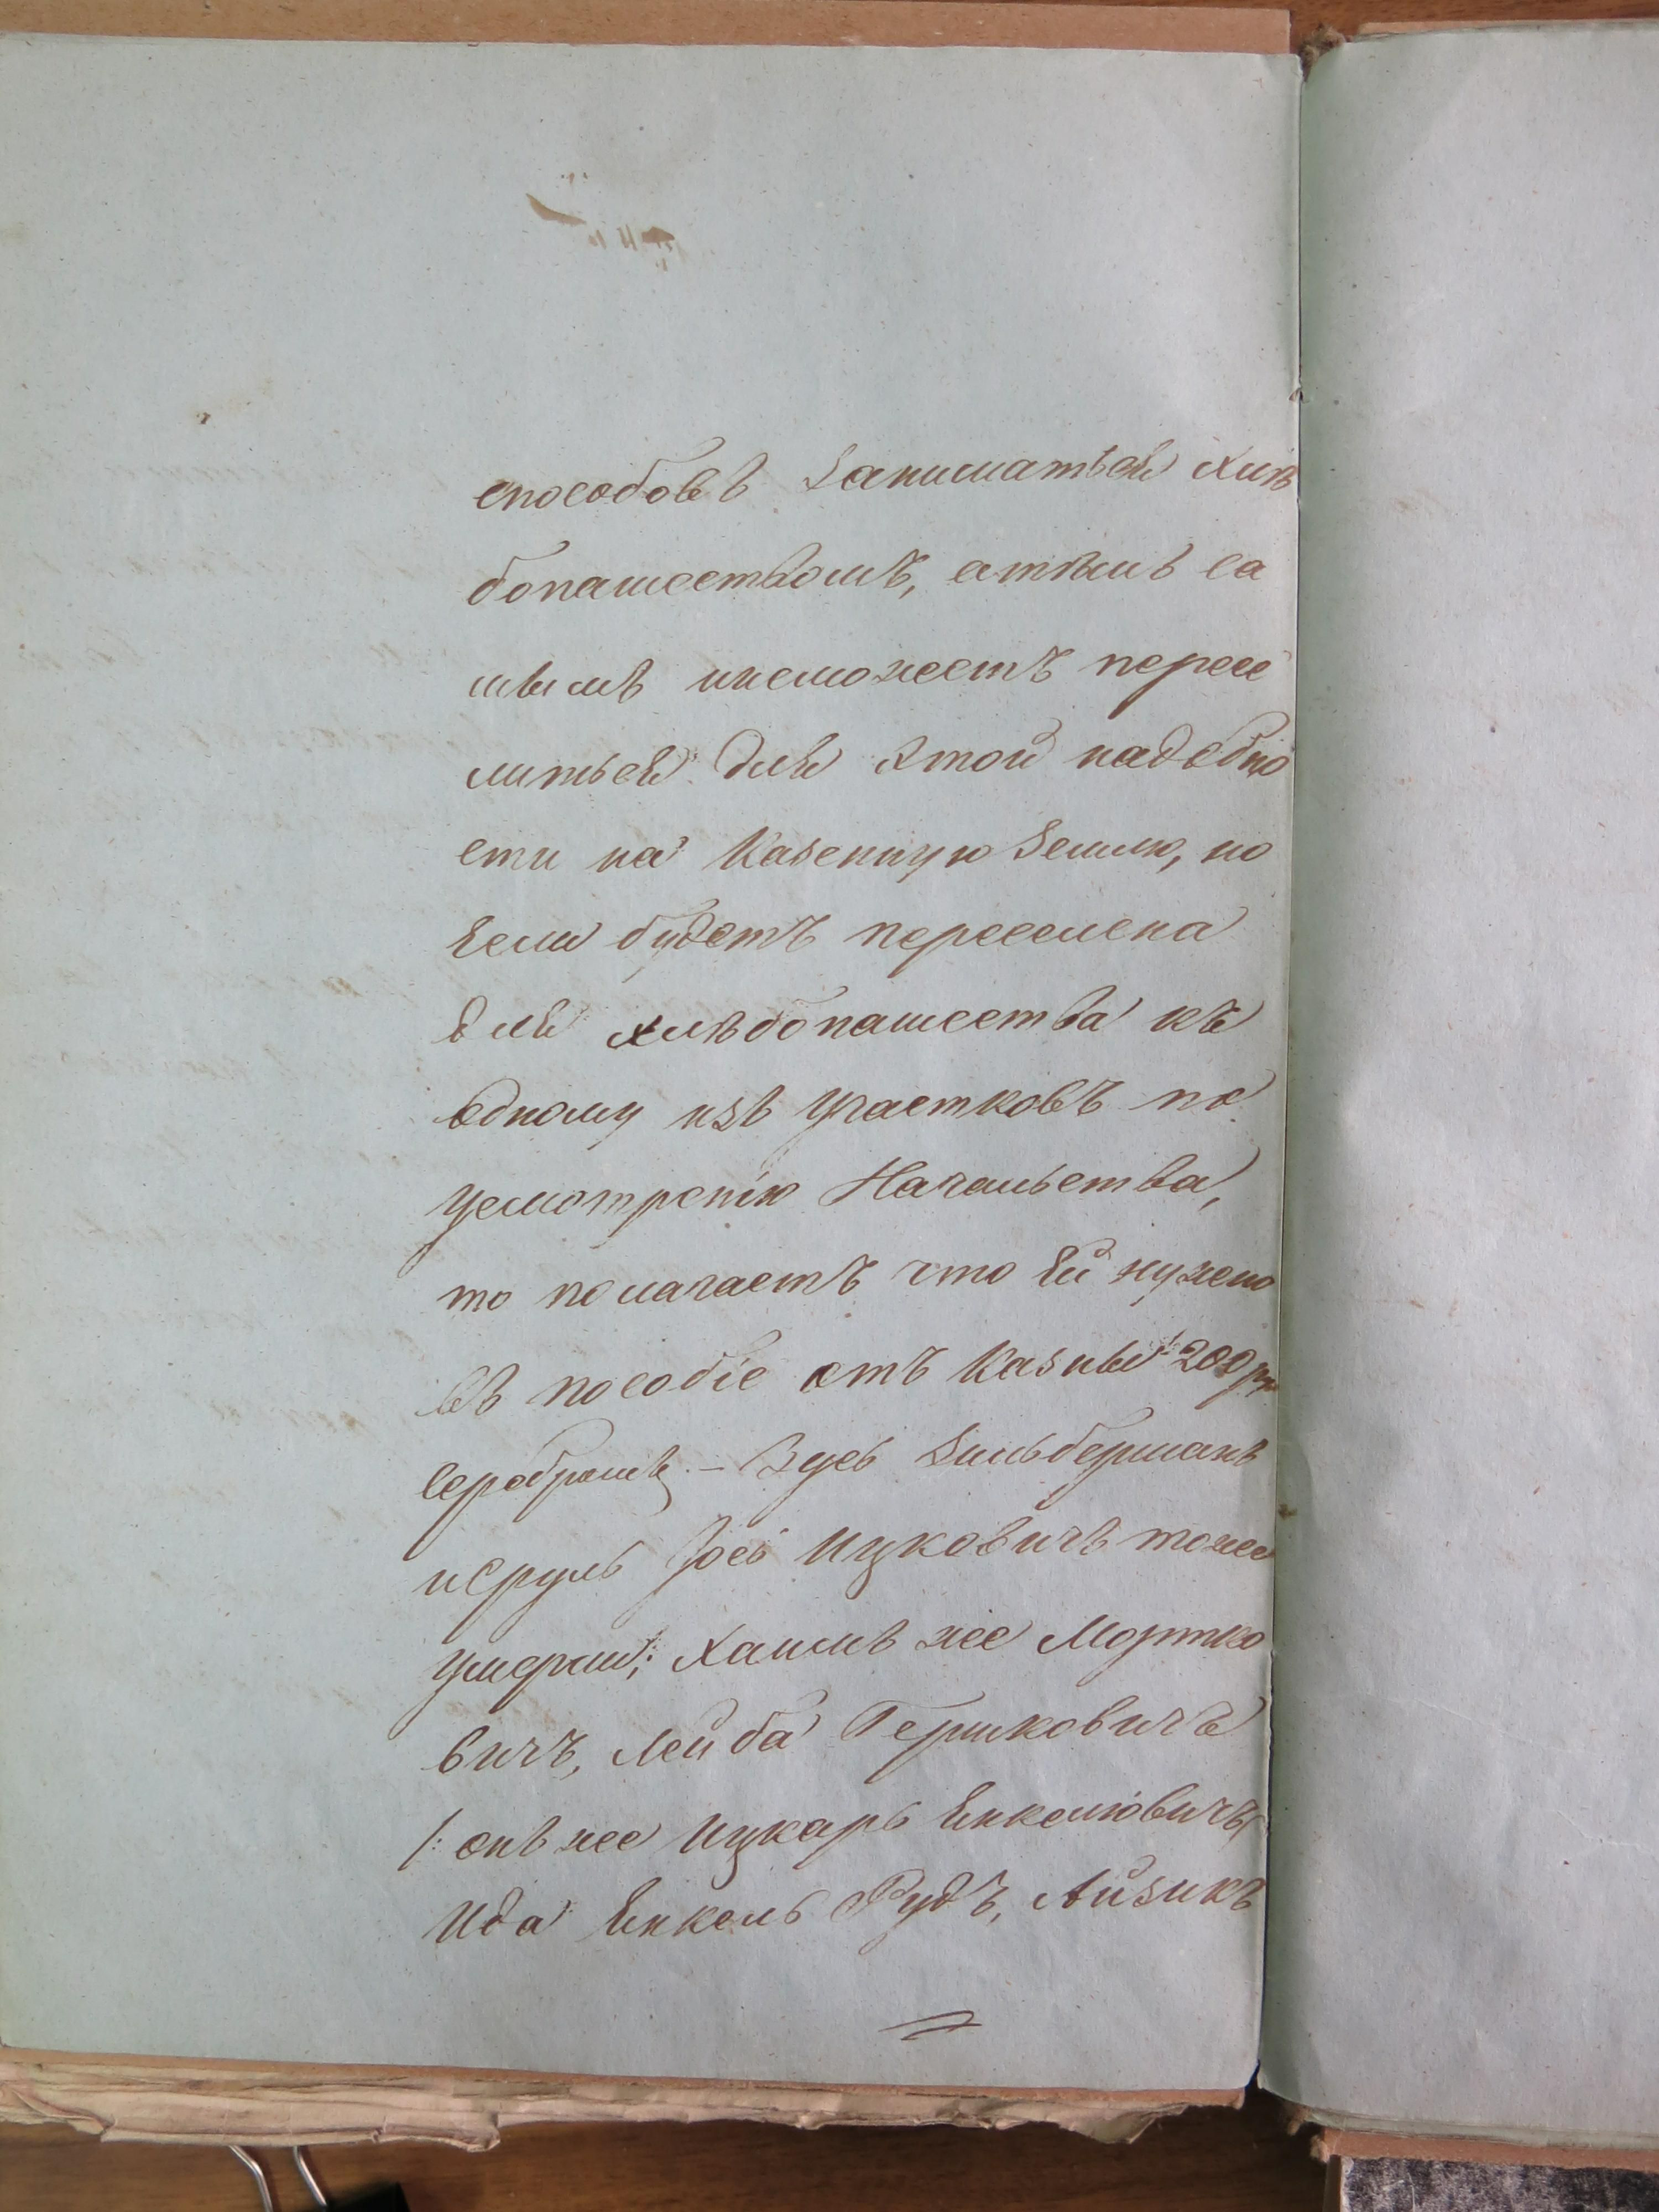 способовъ заниматься хлѣ
бопашествомъ, атѣмъ са
мымъ инеможетъ пересе
литься для этой надобно
сти на казенную землю, но
если будетъ переселена
для хлѣбопашества къ
одному изъ участковъ по
усмотрѣнію Начальства,
то полагаетъ что ей нужено
въ пособіе отъ казны 200 ру
серебромъ. — Зусь Зильберманъ
исруль Іось Ицковичъ тоже
умерли; Хаимъ же Мортко
вичъ, Лейба Гершковичъ
/: онъ же Ицкарь Енкелювичъ/
Ида Енкель Рудъ, Айзикъ